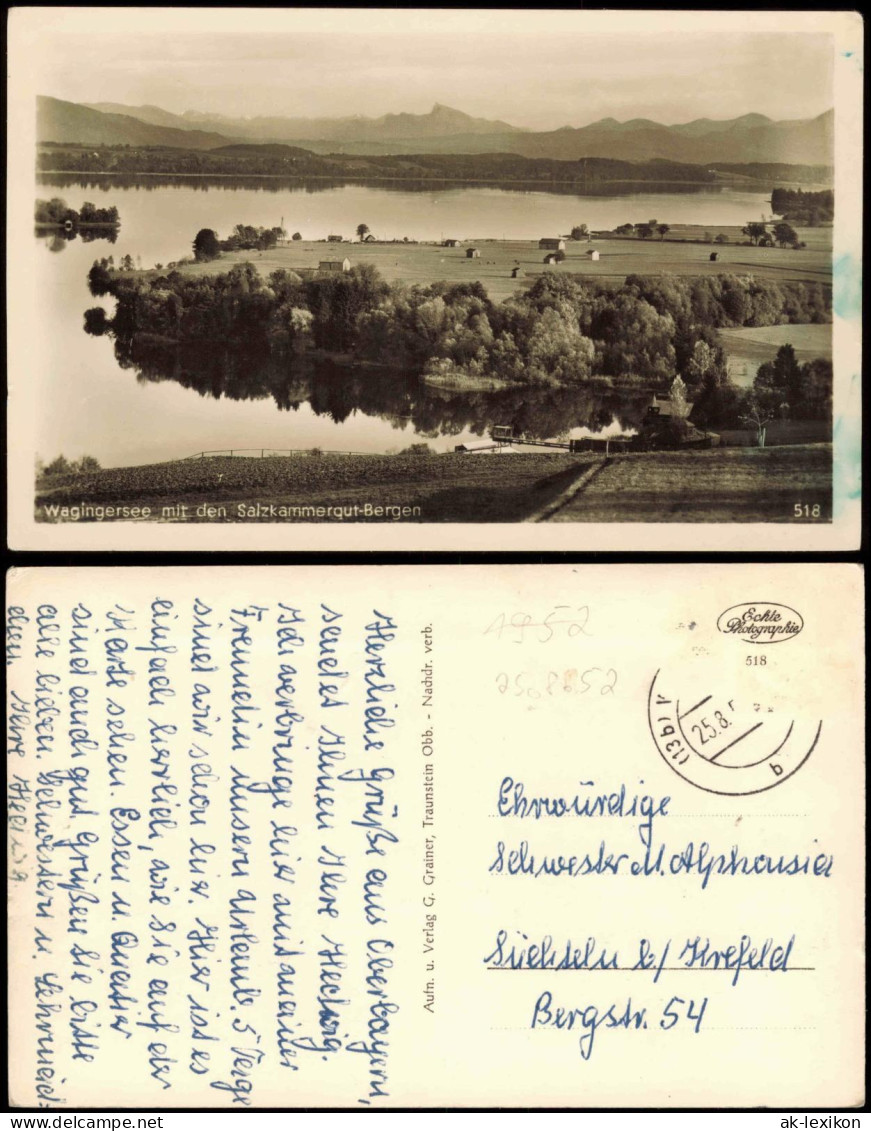 Wagingersee mit den Salzkammergut-Bergen
518
Herzliche Grüße aus Oberbayern,
sendet Ihnen Ihre Hedwig.
Ich verbringe hier mit meiner
Freundin unsern Urlaub. 5 Tage
sind wir schon hier. Hier ist es
einfach herrlich, wie Sie auf der
Karte sehen. Essen u. Quatier
sind auch gut. Grüßen Sie bitte
alle lieben Schwestern u.
Ihre Hedwig.
Aufn. u. Verlag G. Grainer, Traunstein Obb. - Nachdr. verb.
1952
25.8.52
Echte
Photographie
518
(13b)
25.8.
Ehrwürdige
Schwester M. Alphonsia
Süchteln b/ Krefeld
Bergstr. 54
ak-lexikon